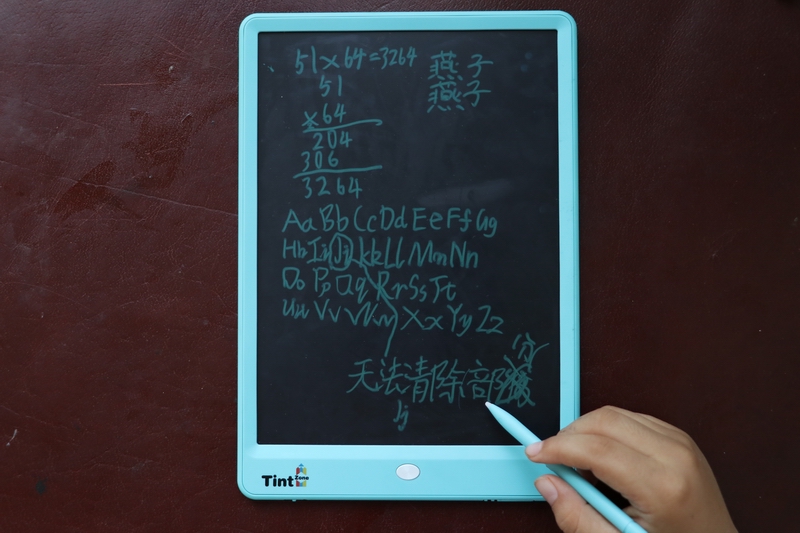 51×64=3264
燕子
燕子
51
×64
204
306
3264
Aa Bb Cc Dd Ee Ff Gg
Hh Ii Jj Kk Ll Mm Nn
Oo Pp Qq Rr Ss Tt
Uu Vv Ww Xx Yy Zz
无法清除部分
Jj
Tint Zone